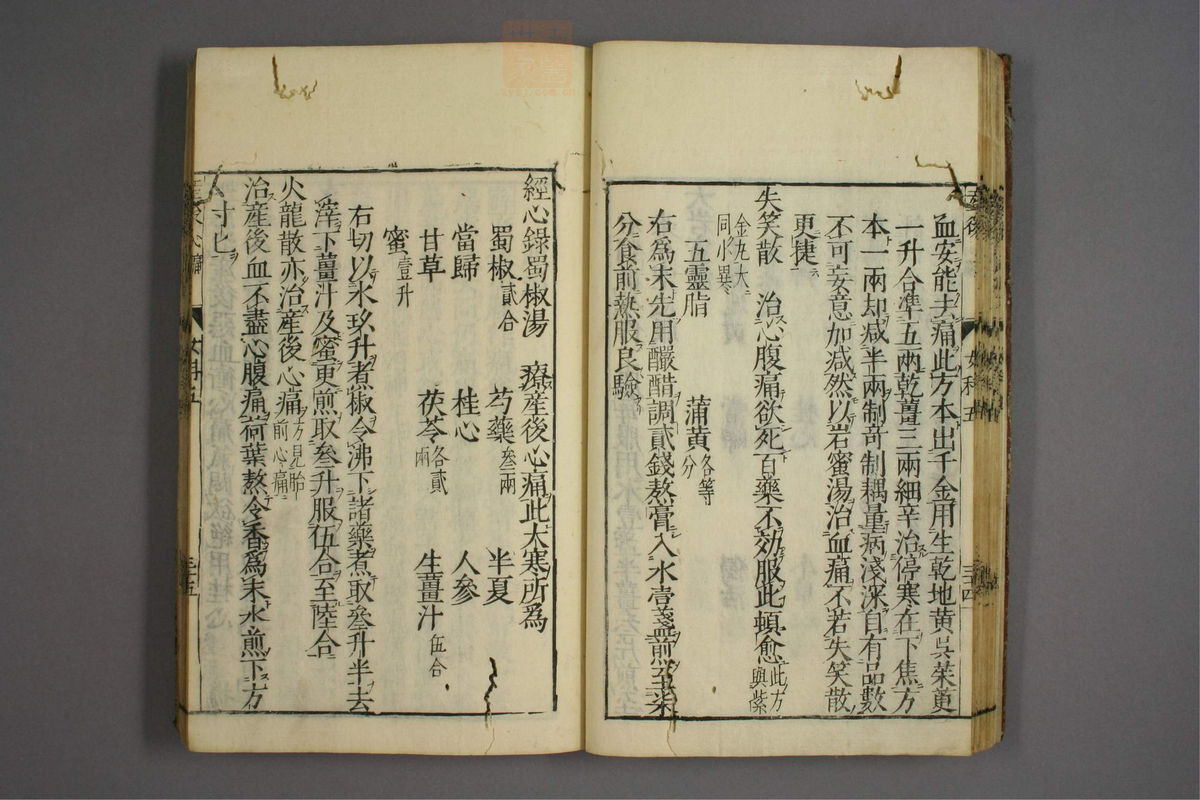 血安能去痛此方本出千金用生乾地黄吳茱萸
一升合準五兩乾薑三兩細辛治停寒在下焦方
本一兩却减半兩制竒制耦量病淺深自有品數
不可妄意加减然以岩蜜湯治血痛不若失笑散
更徤
失笑散　治心腹痛欲死百藥不効服此頓愈此方與紫
金丸大同小異
五靈脂　蒲黄各等分
右爲末先用釅醋調貳錢熬膏入水壹盞煎至柒
分食前熱服良驗
產後
女科五
三四
經心錄蜀椒湯　療産後心痛此大寒所爲
蜀椒貳合　芍藥叁兩　半夏
當歸　桂心　人參
甘草　茯苓各貳兩　生薑汁伍合
蜜壹升
右切以水玖升煮椒令沸下諸藥煮取叁升半去
滓下薑汁及蜜更煎取叁升服伍合至陸合
火龍散亦治産後心痛方見胎前心痛
治産後血不盡心腹痛荷葉熬令香爲末水煎下方
寸匕
三五